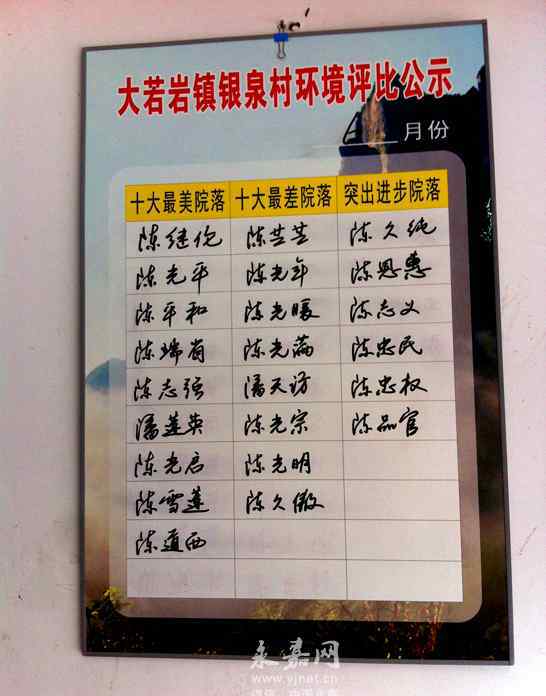 大若岩镇银泉村环境评比公示
6 月份
十大最美院落 十大最差院落 突出进步院落
陈继伦 陈芒芒 陈久纯
陈光平 陈光年 陈恩惠
陈平和 陈光暖 陈志义
陈瑞菊 陈光满 陈忠民
陈志强 潘天访 陈忠权
潘莲英 陈光宗 陈品官
陈光启 陈光明
陈雪莲 陈久傲
陈道西
永嘉网
www.yjnet.cn